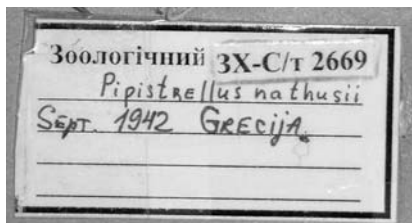 Зоологічний ЗХ-С/т 2669
Pipistrellus nathusii
Sept. 1942 Grecija.